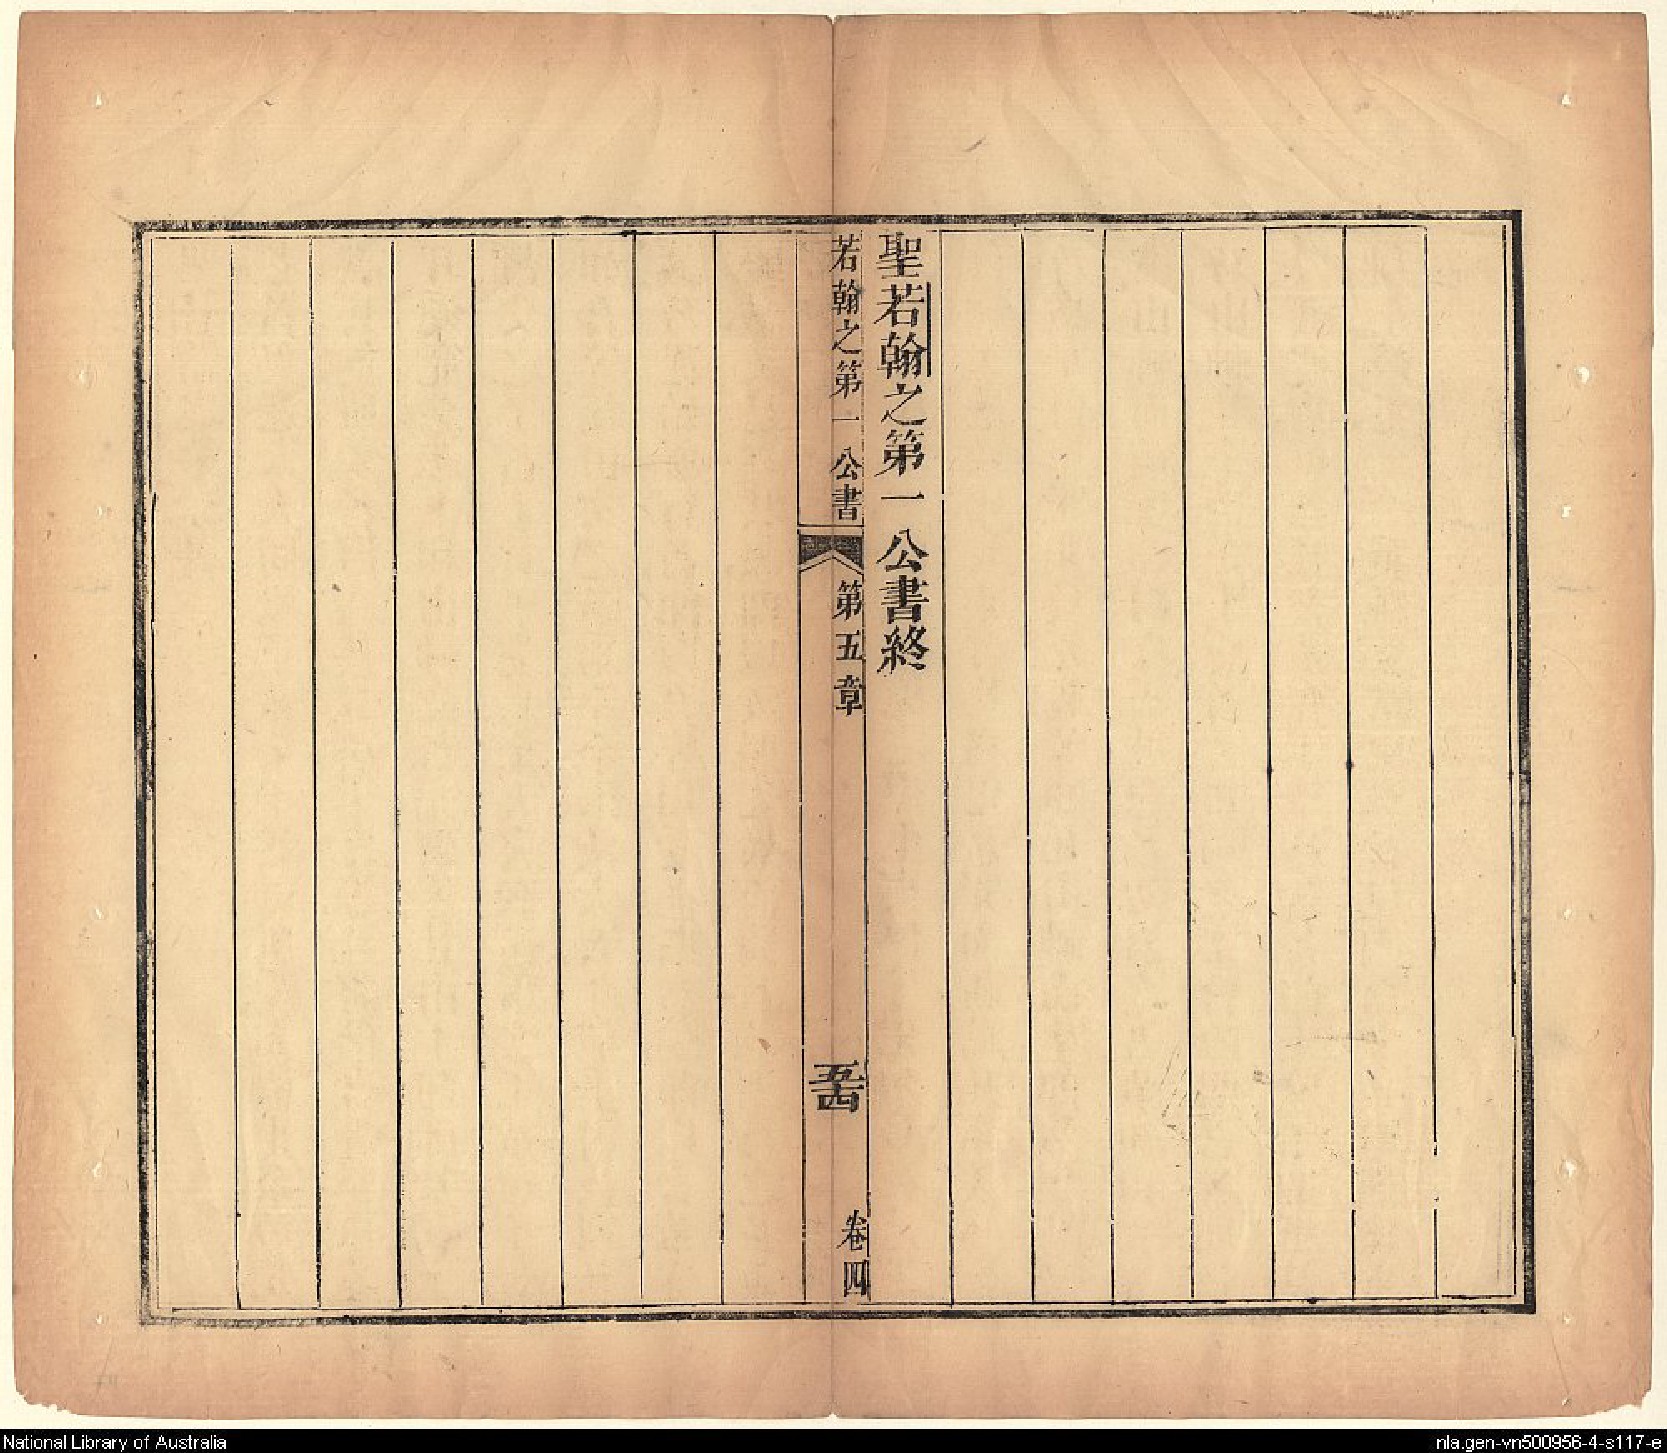 聖若翰之第一公書終
若翰之第一公書
第五章
五四
卷四
National Library of Australia
nla.gen-vn500956-4-s117-e